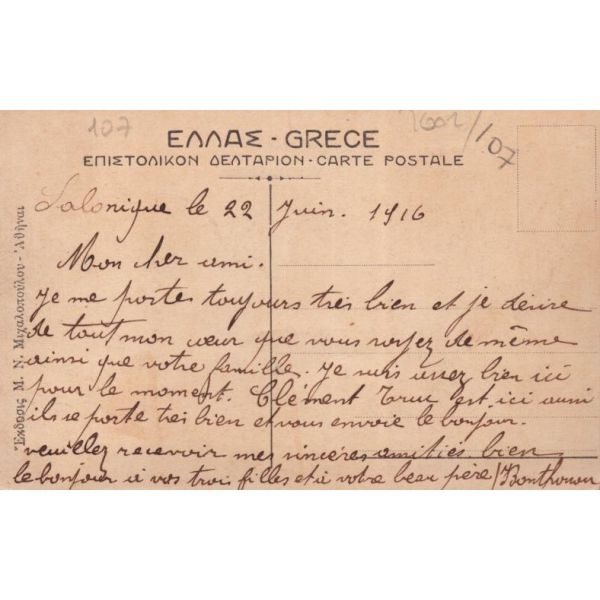 107
ΕΛΛΑΣ · GRECE
ΕΠΙΣΤΟΛΙΚΟΝ ΔΕΛΤΑΡΙΟΝ · CARTE POSTALE
107
Ἔκδοσις Μ. Ν. Μιχαλοπούλου - Ἀθῆναι
Salonique le 22 Juin. 1916
Mon cher ami.
Je me portes toujours très bien et je désire
de tout mon cœur que vous soyez de même
ainsi que votre famille. Je suis assez bien ici
pour le moment. Clément est ici aussi
il se porte très bien et vous envoie le bonjour.
veuillez recevoir mes sincères amitiés bien
le bonjour à vos trois filles et à votre beau père